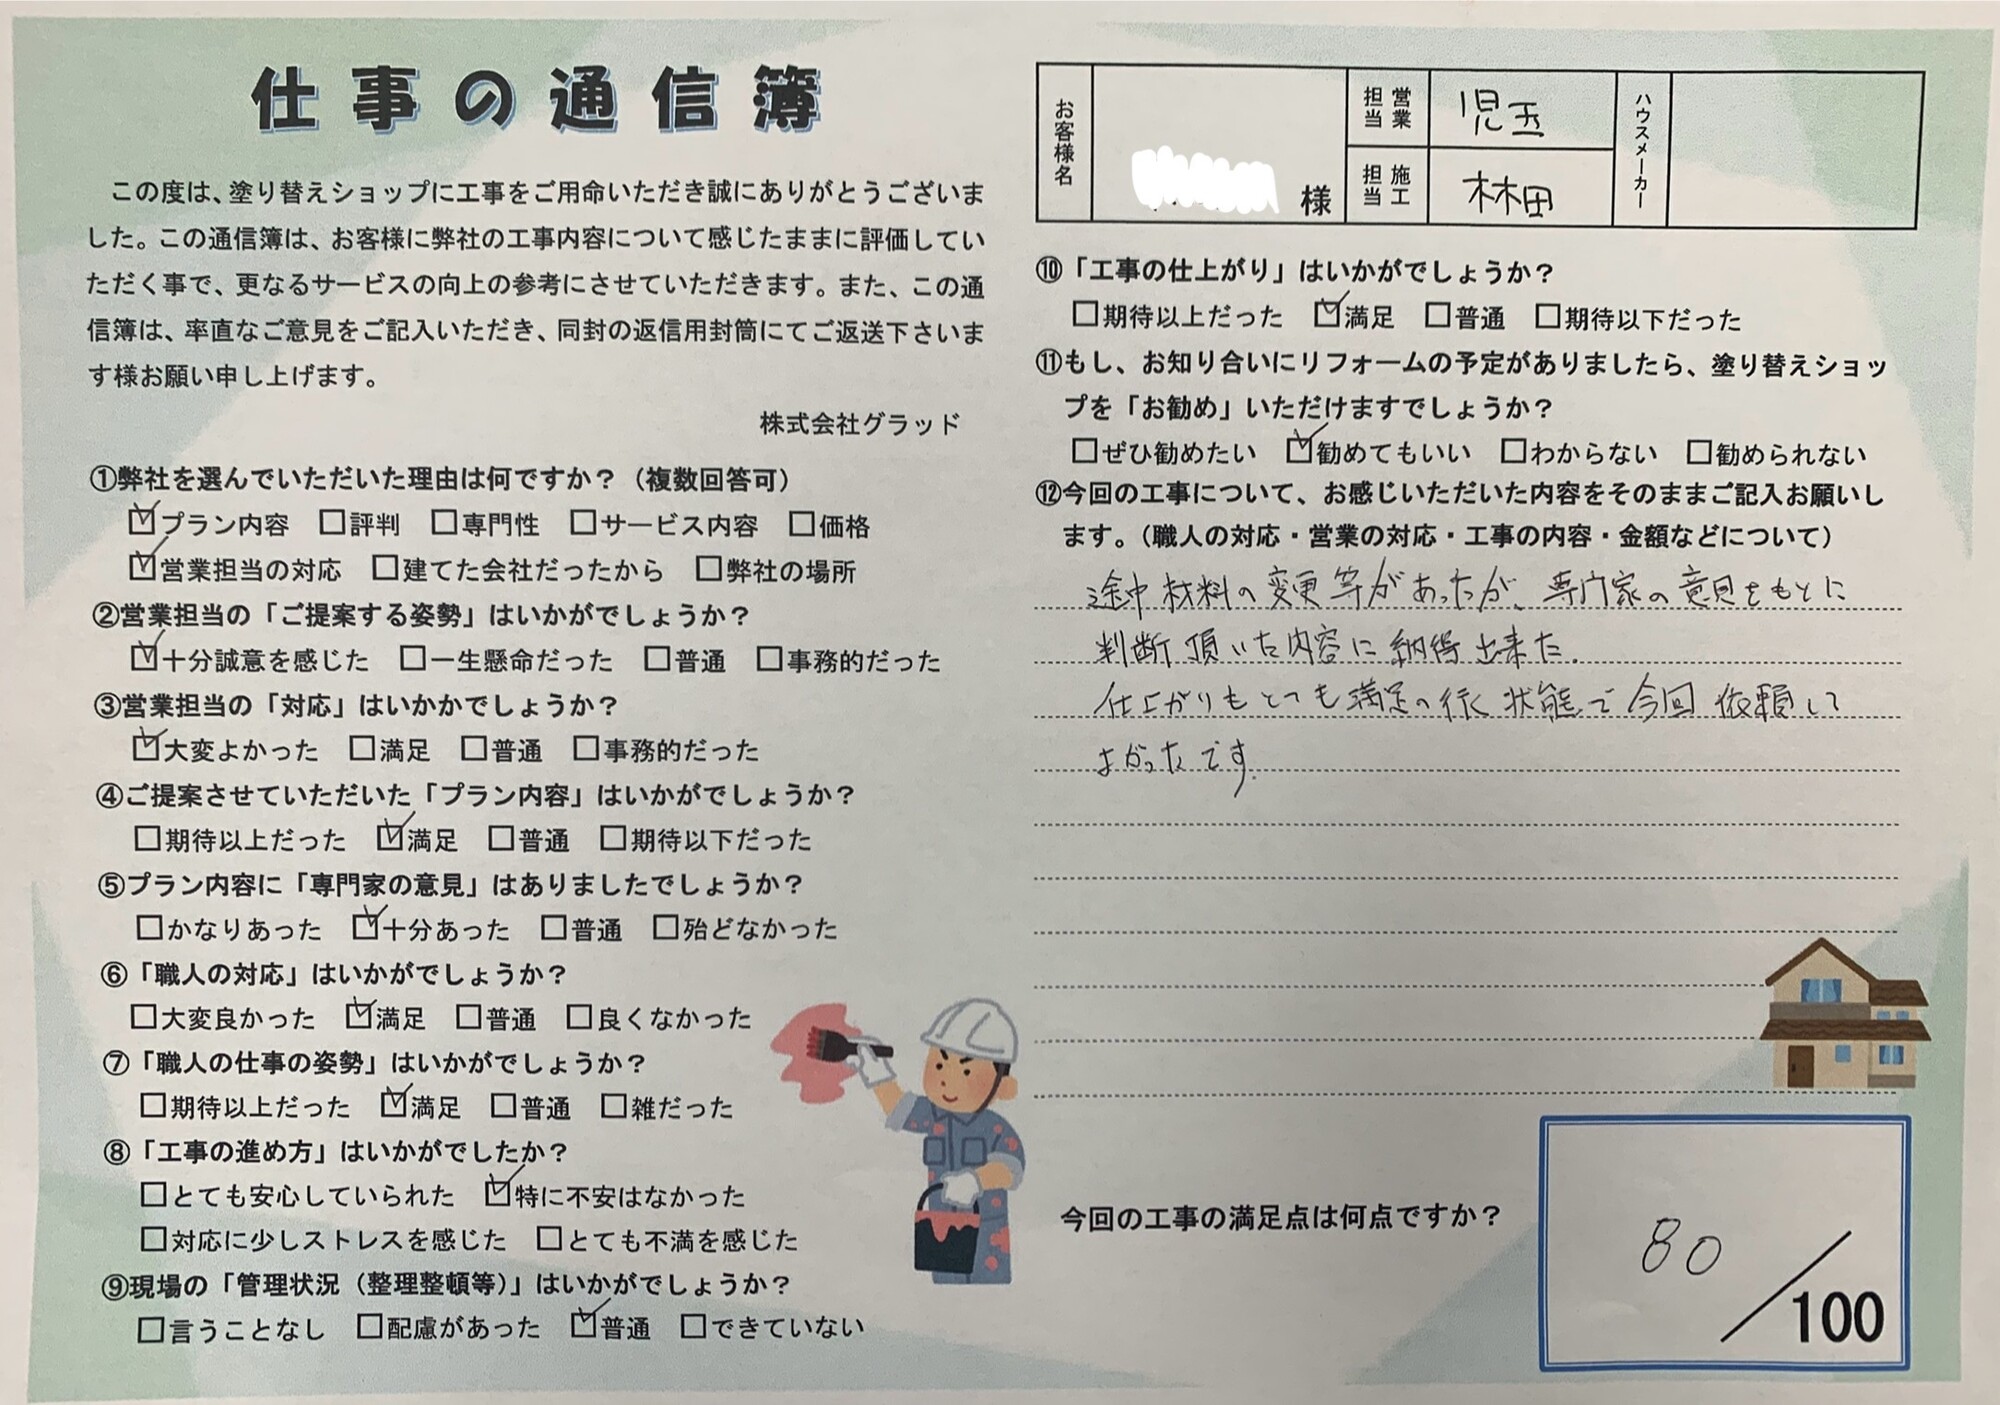 仕事の通信簿
この度は、塗り替えショップに工事をご用命いただき誠にありがとうございま
した。この通信簿は、お客様に弊社の工事内容について感じたままに評価してい
ただく事で、更なるサービスの向上の参考にさせていただきます。また、この通
信簿は、率直なご意見をご記入いただき、同封の返信用封筒にてご返送下さいま
す様お願い申し上げます。
株式会社グラッド
①弊社を選んでいただいた理由は何ですか？（複数回答可）
☑プラン内容 □評判 □専門性 □サービス内容 □価格
☑営業担当の対応 □建てた会社だったから □弊社の場所
②営業担当の「ご提案する姿勢」はいかがでしょうか？
☑十分誠意を感じた □一生懸命だった □普通 □事務的だった
③営業担当の「対応」はいかかでしょうか？
☑大変よかった □満足 □普通 □事務的だった
④ご提案させていただいた「プラン内容」はいかがでしょうか？
□期待以上だった ☑満足 □普通 □期待以下だった
⑤プラン内容に「専門家の意見」はありましたでしょうか？
□かなりあった ☑十分あった □普通 □殆どなかった
⑥「職人の対応」はいかがでしょうか？
□大変良かった ☑満足 □普通 □良くなかった
⑦「職人の仕事の姿勢」はいかがでしょうか？
□期待以上だった ☑満足 □普通 □雑だった
⑧「工事の進め方」はいかがでしたか？
□とても安心していられた ☑特に不安はなかった
□対応に少しストレスを感じた □とても不満を感じた
⑨現場の「管理状況（整理整頓等）」はいかがでしょうか？
□言うことなし □配慮があった ☑普通 □できていない
お客様名 様
営業担当 児玉
施工担当 林田
ハウスメーカー
⑩「工事の仕上がり」はいかがでしょうか？
□期待以上だった ☑満足 □普通 □期待以下だった
⑪もし、お知り合いにリフォームの予定がありましたら、塗り替えショッ
プを「お勧め」いただけますでしょうか？
□ぜひ勧めたい ☑勧めてもいい □わからない □勧められない
⑫今回の工事について、お感じいただいた内容をそのままご記入お願いし
ます。（職人の対応・営業の対応・工事の内容・金額などについて）
途中材料の変更等があったが、専門家の意見をもとに
判断頂いた内容に納得出来た。
仕上がりもとても満足の行く状態で今回依頼して
よかったです。
今回の工事の満足点は何点ですか？
80／100